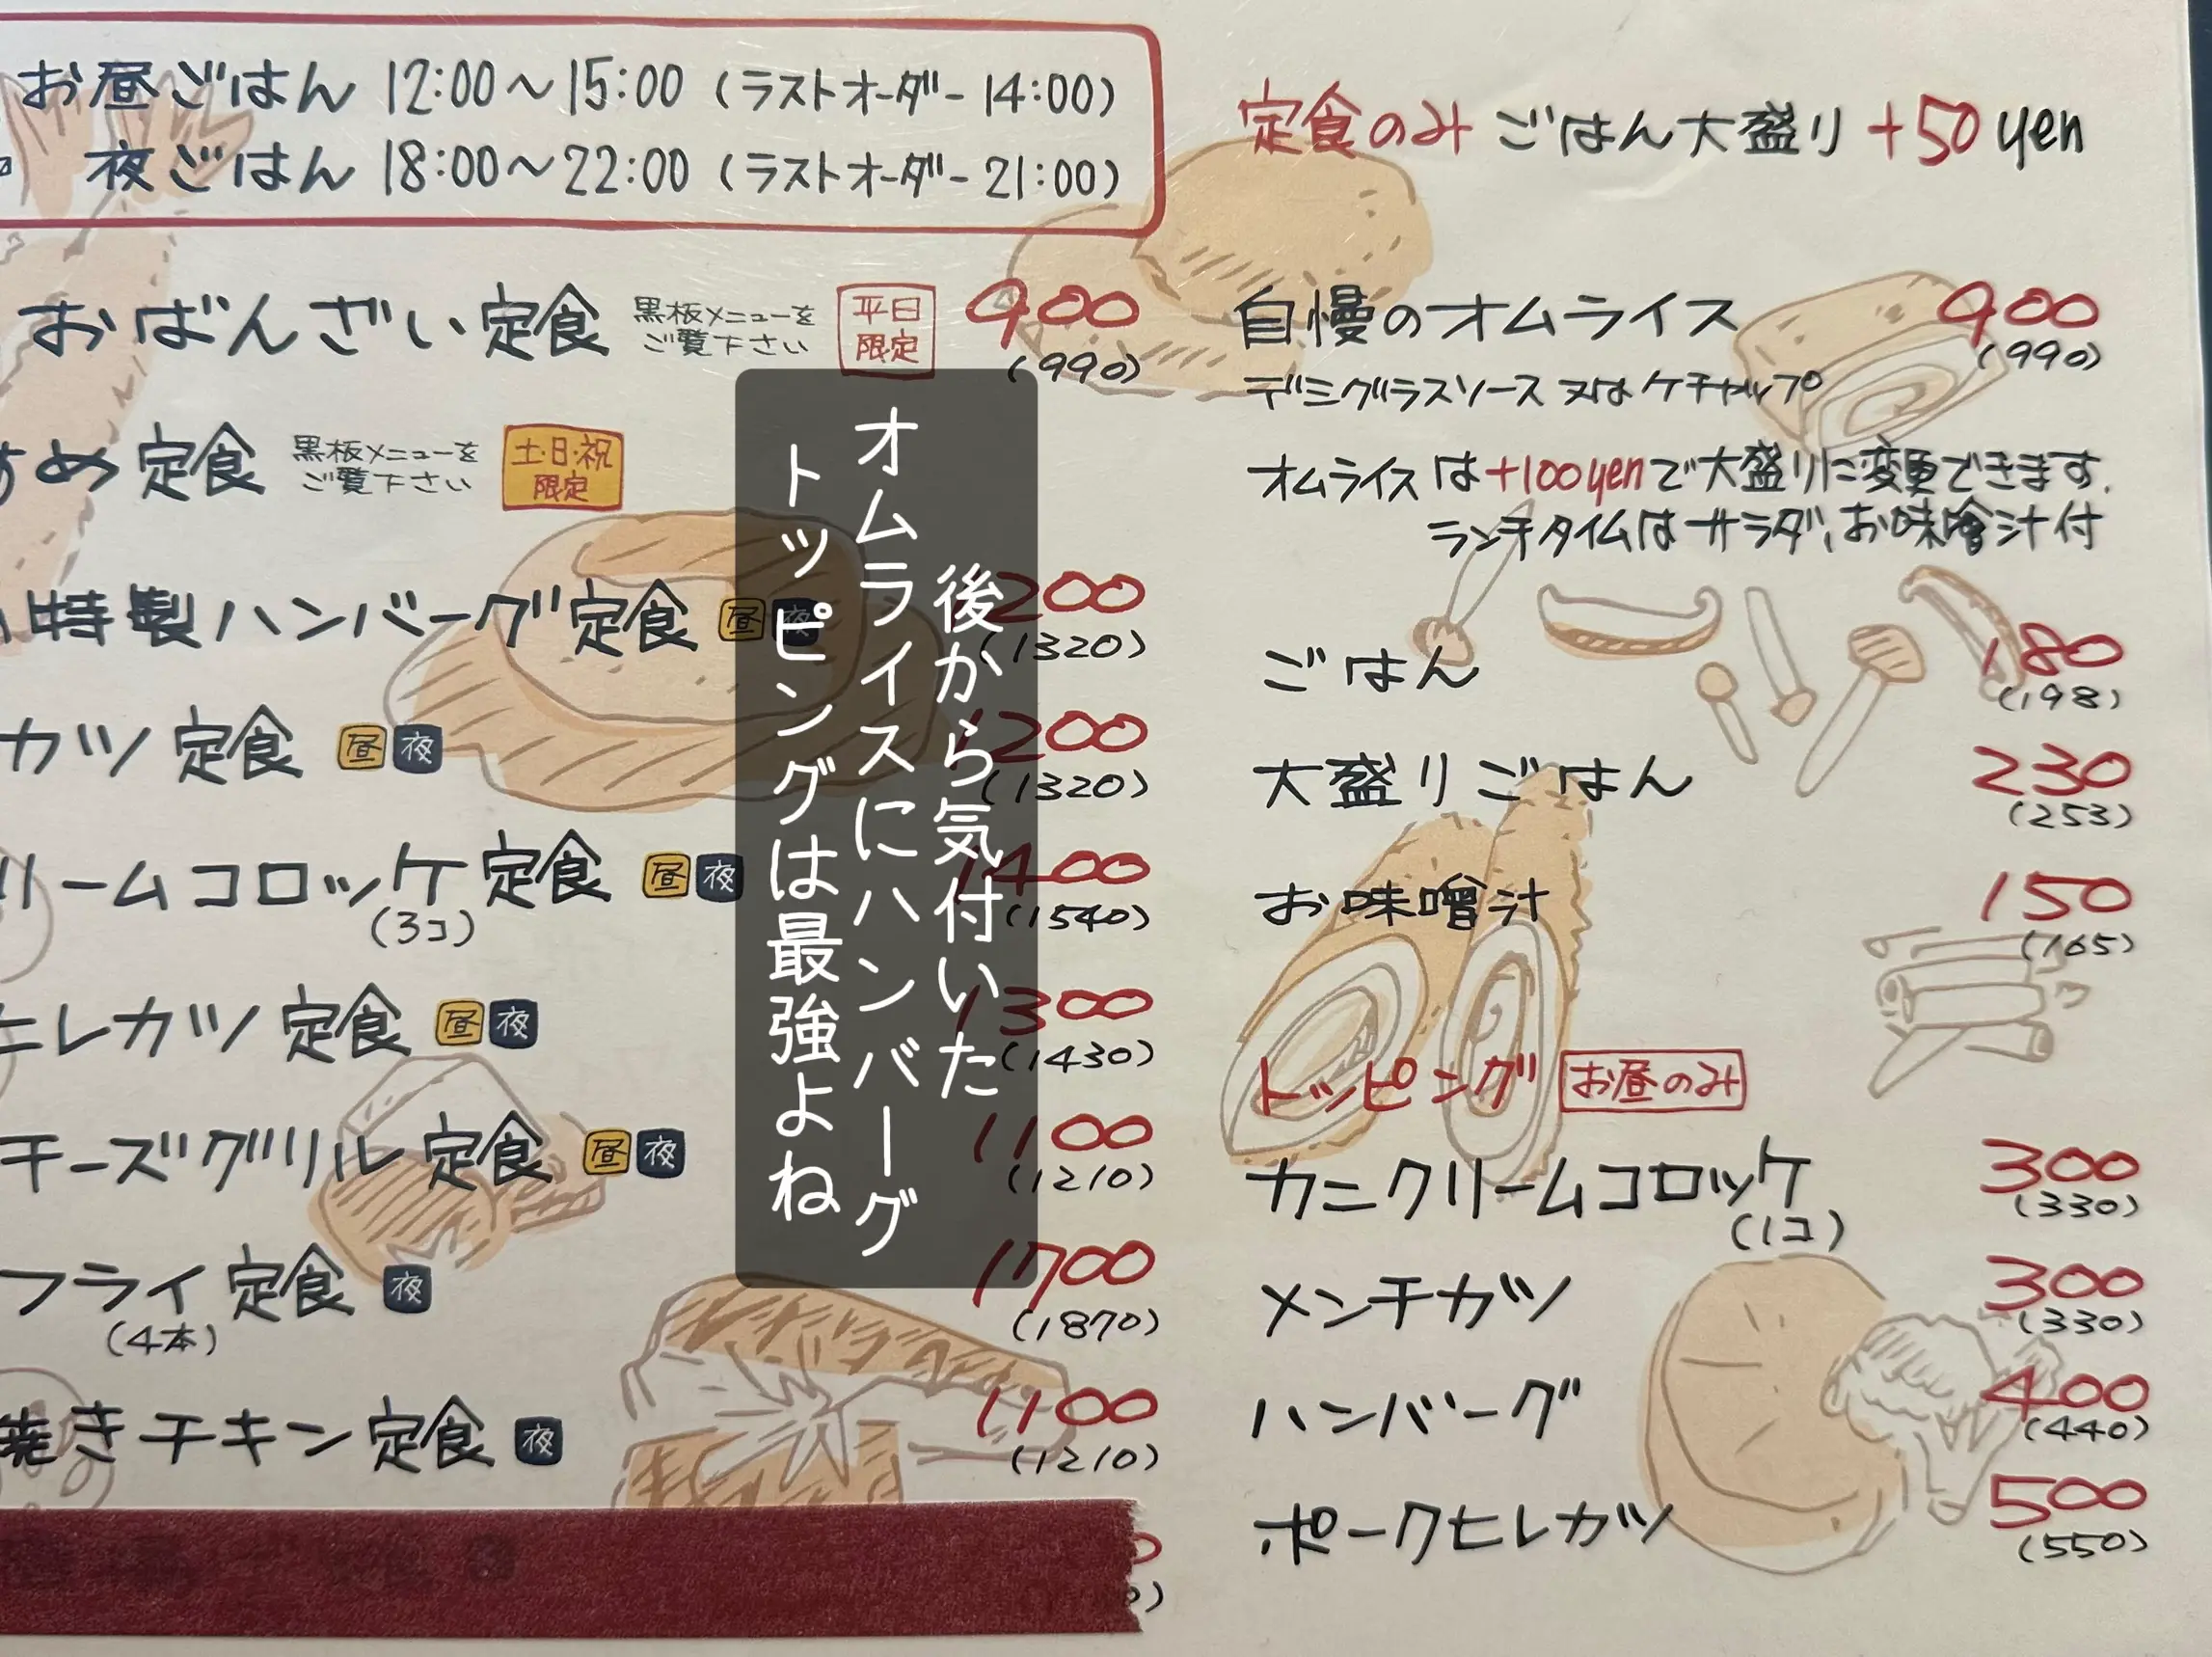 お昼ごはん 12:00〜15:00 (ラストオーダー 14:00)
夜ごはん 18:00〜22:00 (ラストオーダー 21:00)
おばんざい定食 黒板メニューをご覧下さい 平日限定 900
(990)
すめ定食 黒板メニューをご覧下さい 土・日・祝限定
特製ハンバーグ定食 昼 夜 1200
(1320)
カツ定食 昼 夜 1200
(1320)
リームコロッケ定食 昼 夜 1400
(3コ) (1540)
ヒレカツ定食 昼 夜 1300
(1430)
チーズグリル定食 昼 夜 1100
(1210)
フライ定食 夜 1700
(4本) (1870)
焼きチキン定食 夜 1100
(1210)
後から気付いた
オムライスにハンバーグ
トッピングは最強よね
定食のみ ごはん大盛り +50yen
自慢のオムライス 900
(990)
デミグラスソース 又は ケチャップ
オムライスは+100yenで大盛りに変更できます.
ランチタイムはサラダ、お味噌汁付
ごはん 180
(198)
大盛りごはん 230
(253)
お味噌汁 150
(165)
トッピング お昼のみ
カニクリームコロッケ 300
(1コ) (330)
メンチカツ 300
(330)
ハンバーグ 400
(440)
ポークヒレカツ 500
(550)